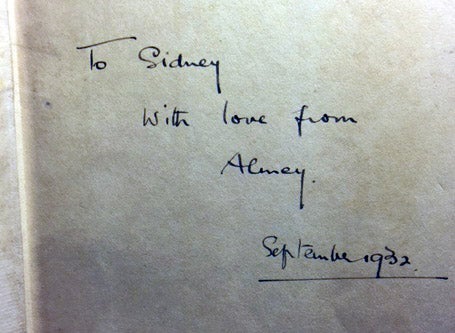 To Sidney
With love from
Almey.
September 1932.